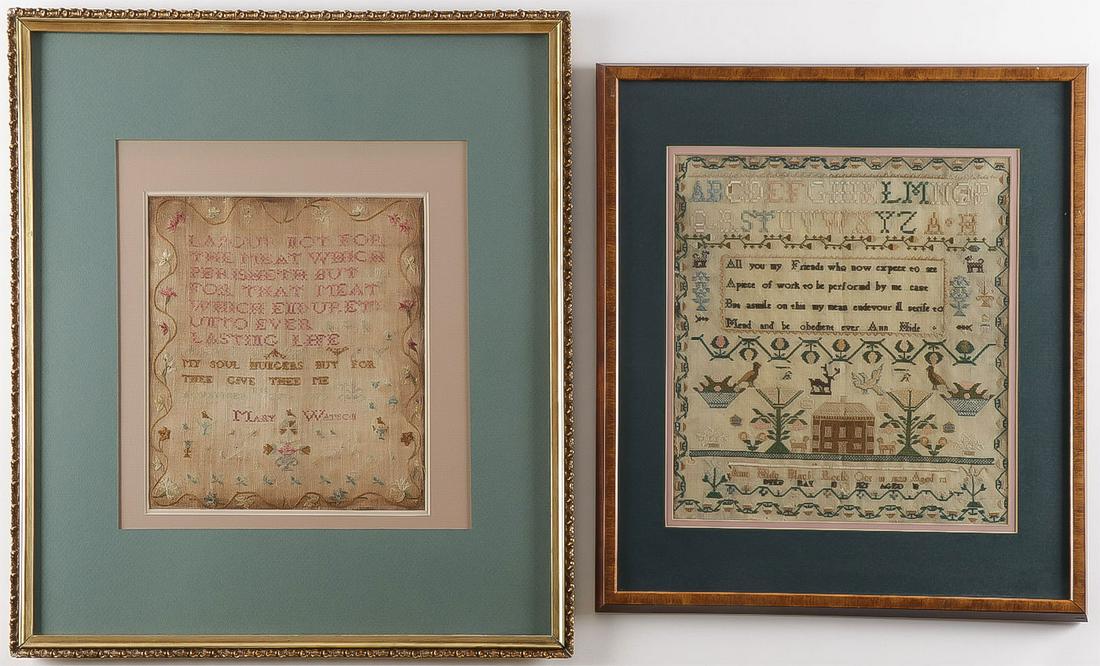 LABOUR NOT FOR
THE MEAT WHICH
PERISHETH BUT
FOR THAT MEAT
WHICH ENDURETH
UNTO EVER
LASTING LIFE
MY SOUL HUNGERS BUT FOR
THEE GIVE THEE ME
MARY WATSON
ABCDEFGHIKLMNOP
QRSTUVWXYZ A·H
All you my Friends who now expect to see
A piece of work to be performd by me
But a smile on this my mean endevour ill strife to
Mend and be obedient ever Ann Hide
Ann Hide Black Rock Oct Aged
DYED MAY AGED